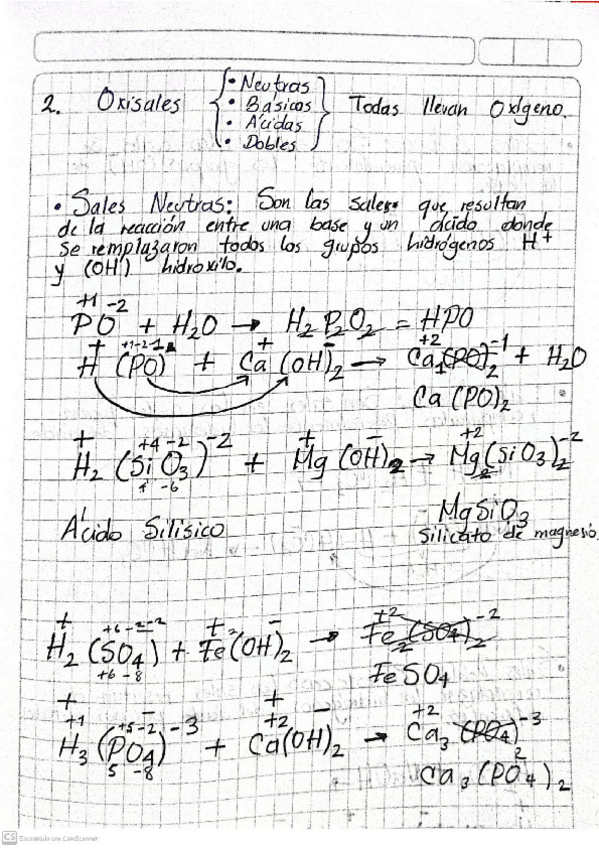 2. Oxisales { • Neutras • Básicas • Ácidas • Dobles } Todas llevan Oxígeno.
• Sales Neutras: Son las sales que resultan
de la reacción entre una base y un ácido donde
se remplazaron todos los grupos hidrógenos H+
y (OH) hidroxilo.
+1 -2
PO + H2O → H2P2O2 = HPO
+ +1-2-1 + - +2 -1
H (PO) + Ca (OH)2 → Ca1(PO)2 + H2O
Ca (PO)2
+ +4 -2 -2 + - +2 -2
H2 (SiO3) + Mg (OH)2 → Mg2(SiO3)2
-6
MgSiO3
Ácido Silísico Silicato de magnesio.
+ +6 -2 -2 + - +2 -2
H2 (SO4) + Fe(OH)2 → Fe2(SO4)2
+6 -8
FeSO4
+ - + -
+1 +5 -2 -3 +2 +2 -3
H3 (PO4) + Ca(OH)2 → Ca3 (PO4)2
5 -8
Ca3 (PO4)2
CS Escaneado con CamScanner